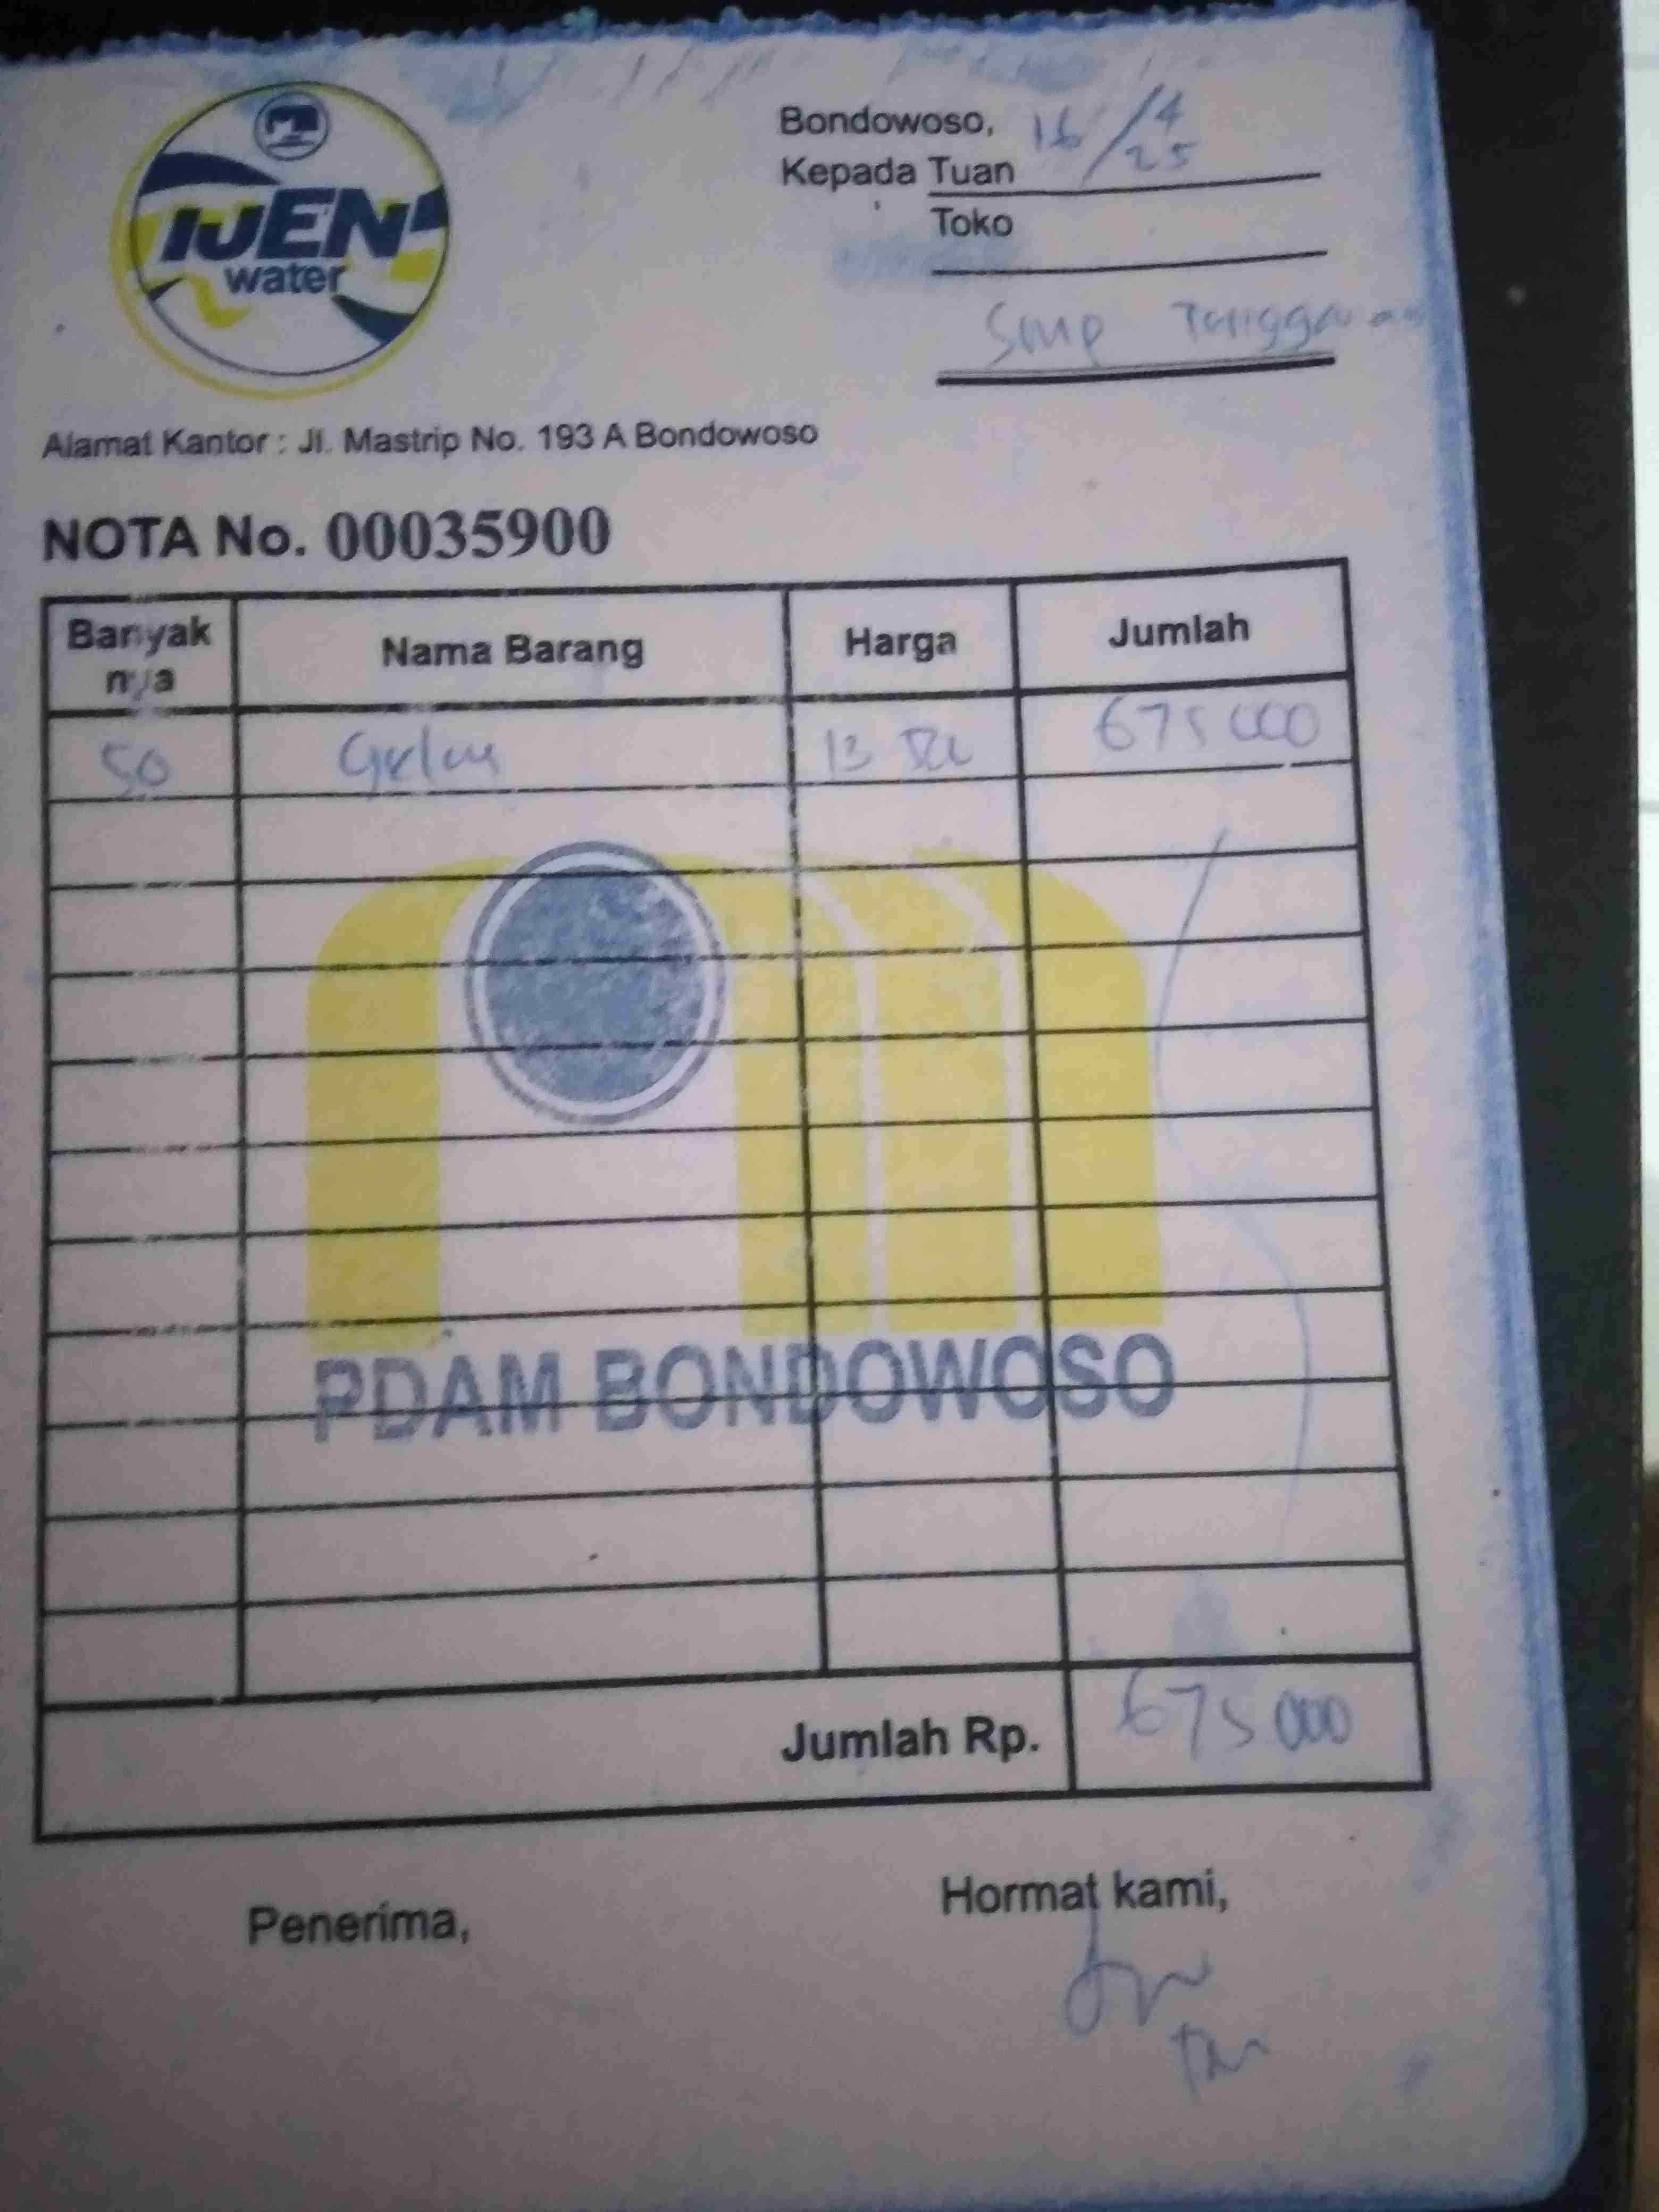 IJEN
water
Bondowoso, 16/4/25
Kepada Tuan
Toko
Smp Tenggarang
Alamat Kantor : Jl. Mastrip No. 193 A Bondowoso
NOTA No. 00035900
Banyak nya Nama Barang Harga Jumlah
50 Gelas 13 500 675 000
PDAM BONDOWOSO
Jumlah Rp. 675 000
Penerima, Hormat kami,